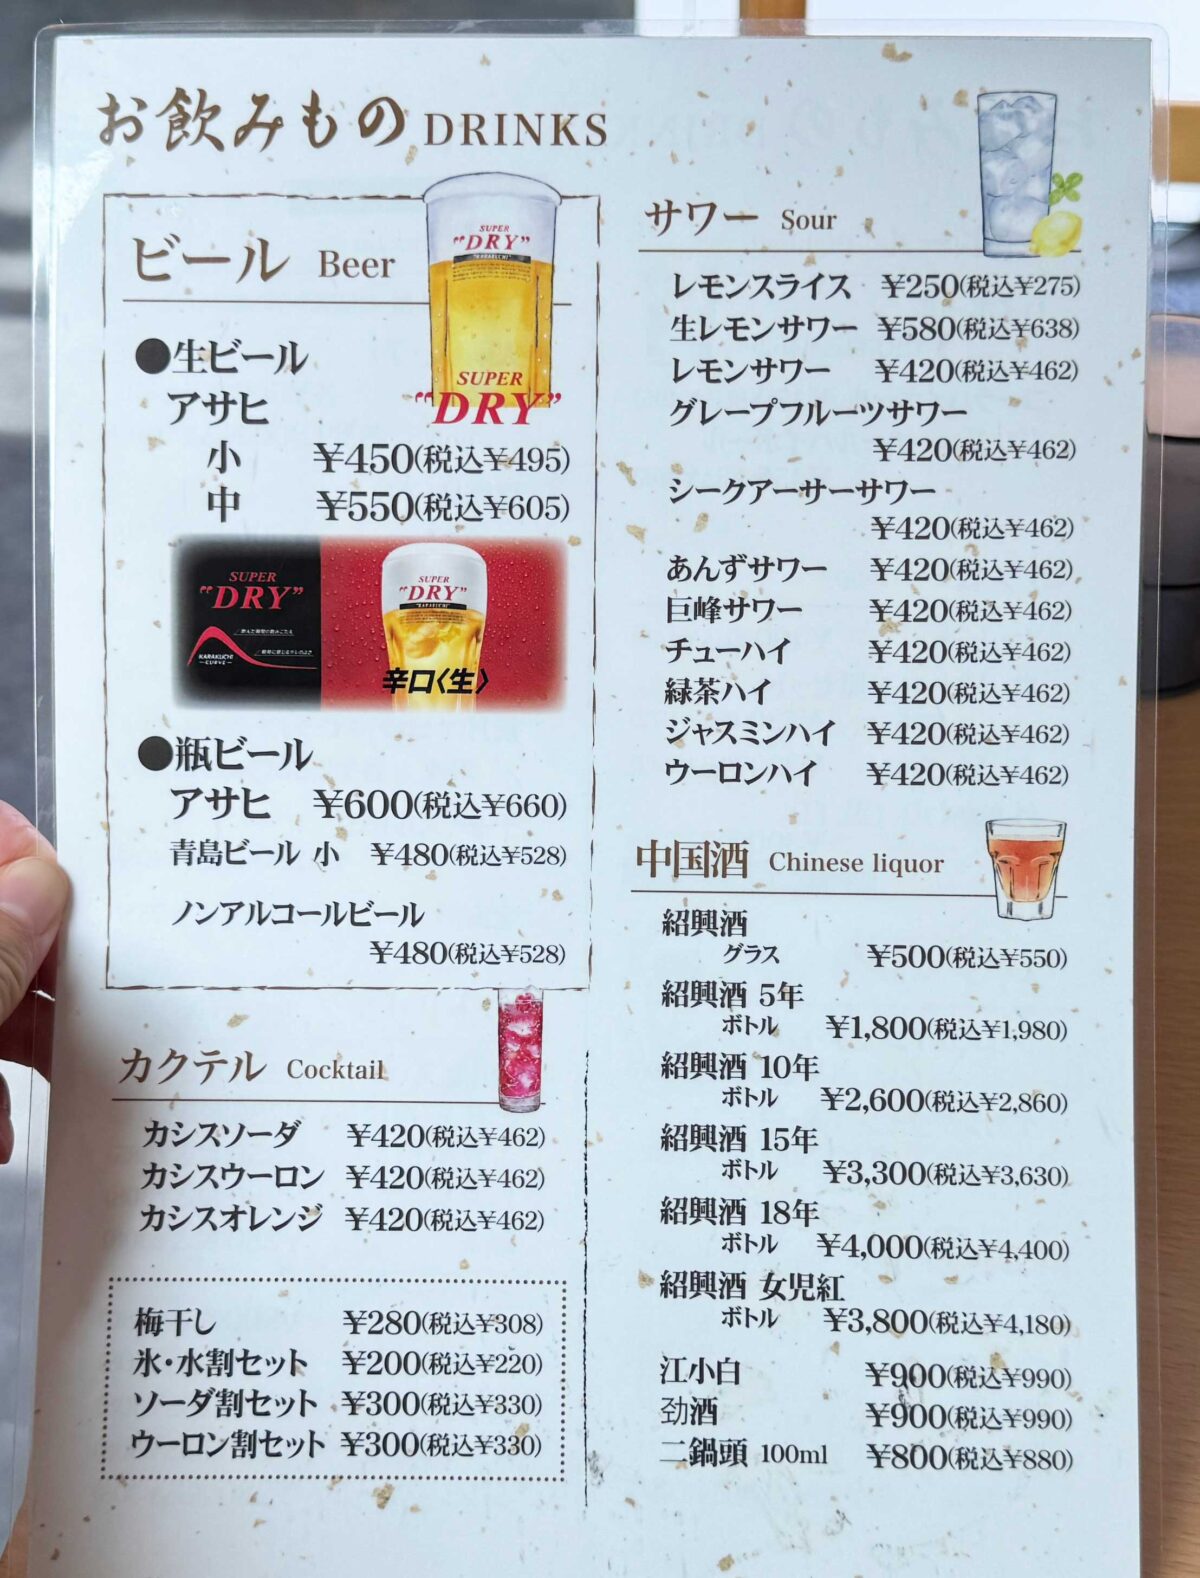 お飲みもの DRINKS
ビール Beer
SUPER
"DRY"
"KARAKUCHI"
●生ビール
アサヒ
SUPER
"DRY"
小 ¥450(税込¥495)
中 ¥550(税込¥605)
SUPER
"DRY"
KARAKUCHI
CURVE
SUPER
"DRY"
"KARAKUCHI"
辛口〈生〉
●瓶ビール
アサヒ ¥600(税込¥660)
青島ビール 小 ¥480(税込¥528)
ノンアルコールビール
¥480(税込¥528)
カクテル Cocktail
カシスソーダ ¥420(税込¥462)
カシスウーロン ¥420(税込¥462)
カシスオレンジ ¥420(税込¥462)
梅干し ¥280(税込¥308)
氷・水割セット ¥200(税込¥220)
ソーダ割セット ¥300(税込¥330)
ウーロン割セット ¥300(税込¥330)
サワー Sour
レモンスライス ¥250(税込¥275)
生レモンサワー ¥580(税込¥638)
レモンサワー ¥420(税込¥462)
グレープフルーツサワー
¥420(税込¥462)
シークアーサーサワー
¥420(税込¥462)
あんずサワー ¥420(税込¥462)
巨峰サワー ¥420(税込¥462)
チューハイ ¥420(税込¥462)
緑茶ハイ ¥420(税込¥462)
ジャスミンハイ ¥420(税込¥462)
ウーロンハイ ¥420(税込¥462)
中国酒 Chinese liquor
紹興酒
グラス ¥500(税込¥550)
紹興酒 5年
ボトル ¥1,800(税込¥1,980)
紹興酒 10年
ボトル ¥2,600(税込¥2,860)
紹興酒 15年
ボトル ¥3,300(税込¥3,630)
紹興酒 18年
ボトル ¥4,000(税込¥4,400)
紹興酒 女児紅
ボトル ¥3,800(税込¥4,180)
江小白 ¥900(税込¥990)
劲酒 ¥900(税込¥990)
二鍋頭 100ml ¥800(税込¥880)